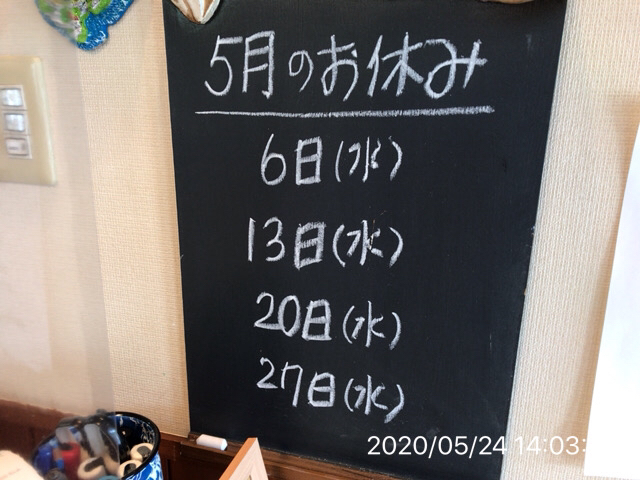 5月のお休み
6日(水)
13日(水)
20日(水)
27日(水)
2020/05/24 14:03: